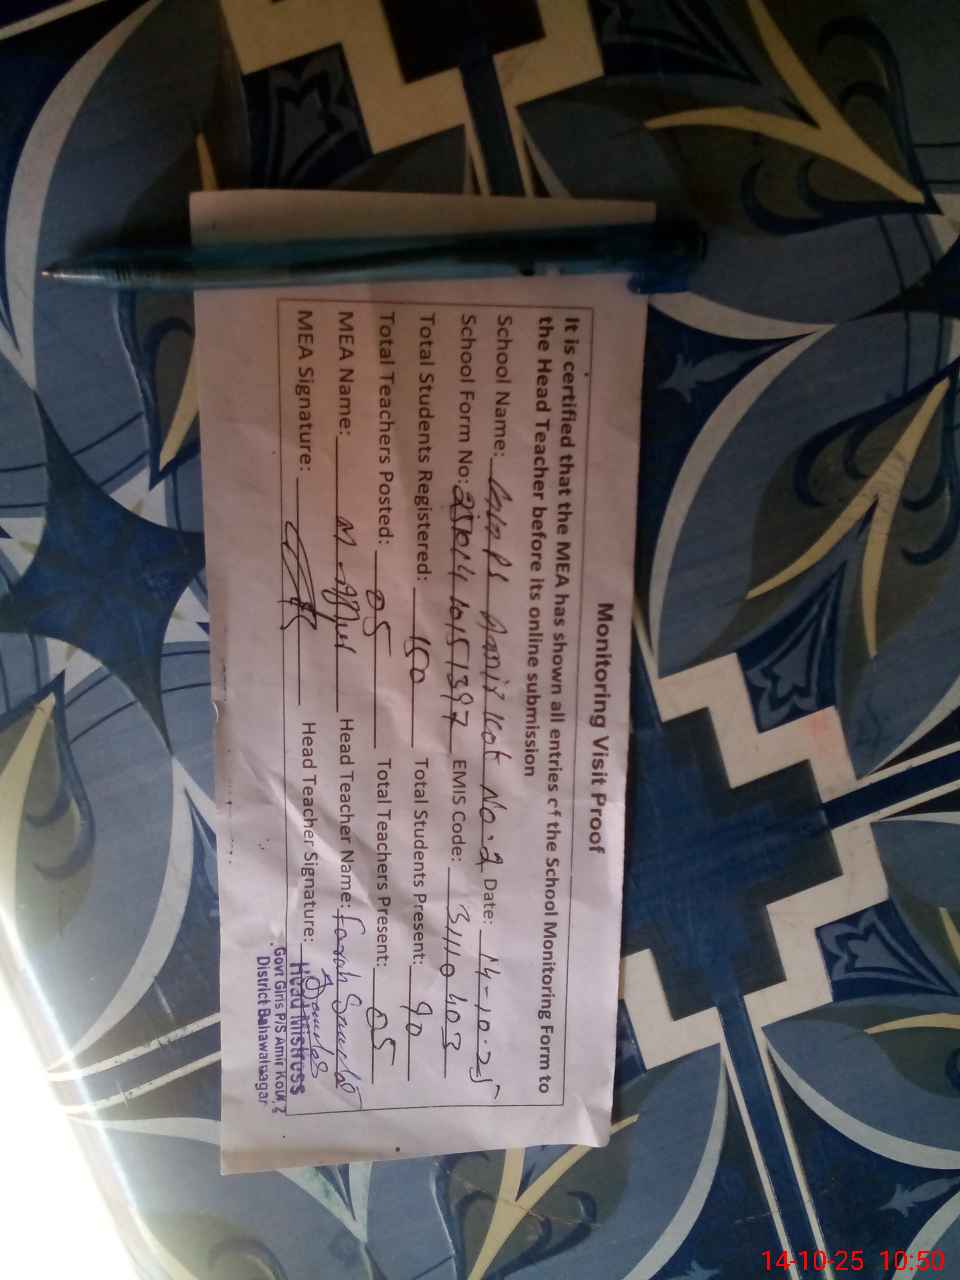 Monitoring Visit Proof
It is certified that the MEA has shown all entries of the School Monitoring Form to
the Head Teacher before its online submission
School Name: Kot No. 2 Date: 14-10-25
School Form No: EMIS Code: 31110403
Total Students Registered: 150 Total Students Present: 90
Total Teachers Posted: 05 Total Teachers Present: 05
MEA Name: M. Head Teacher Name: Farah
MEA Signature: Head Teacher Signature:
Head Mistress
Govt Girls P/S Amir Kot 2
District Bahawalnagar
14-10-25 10:50